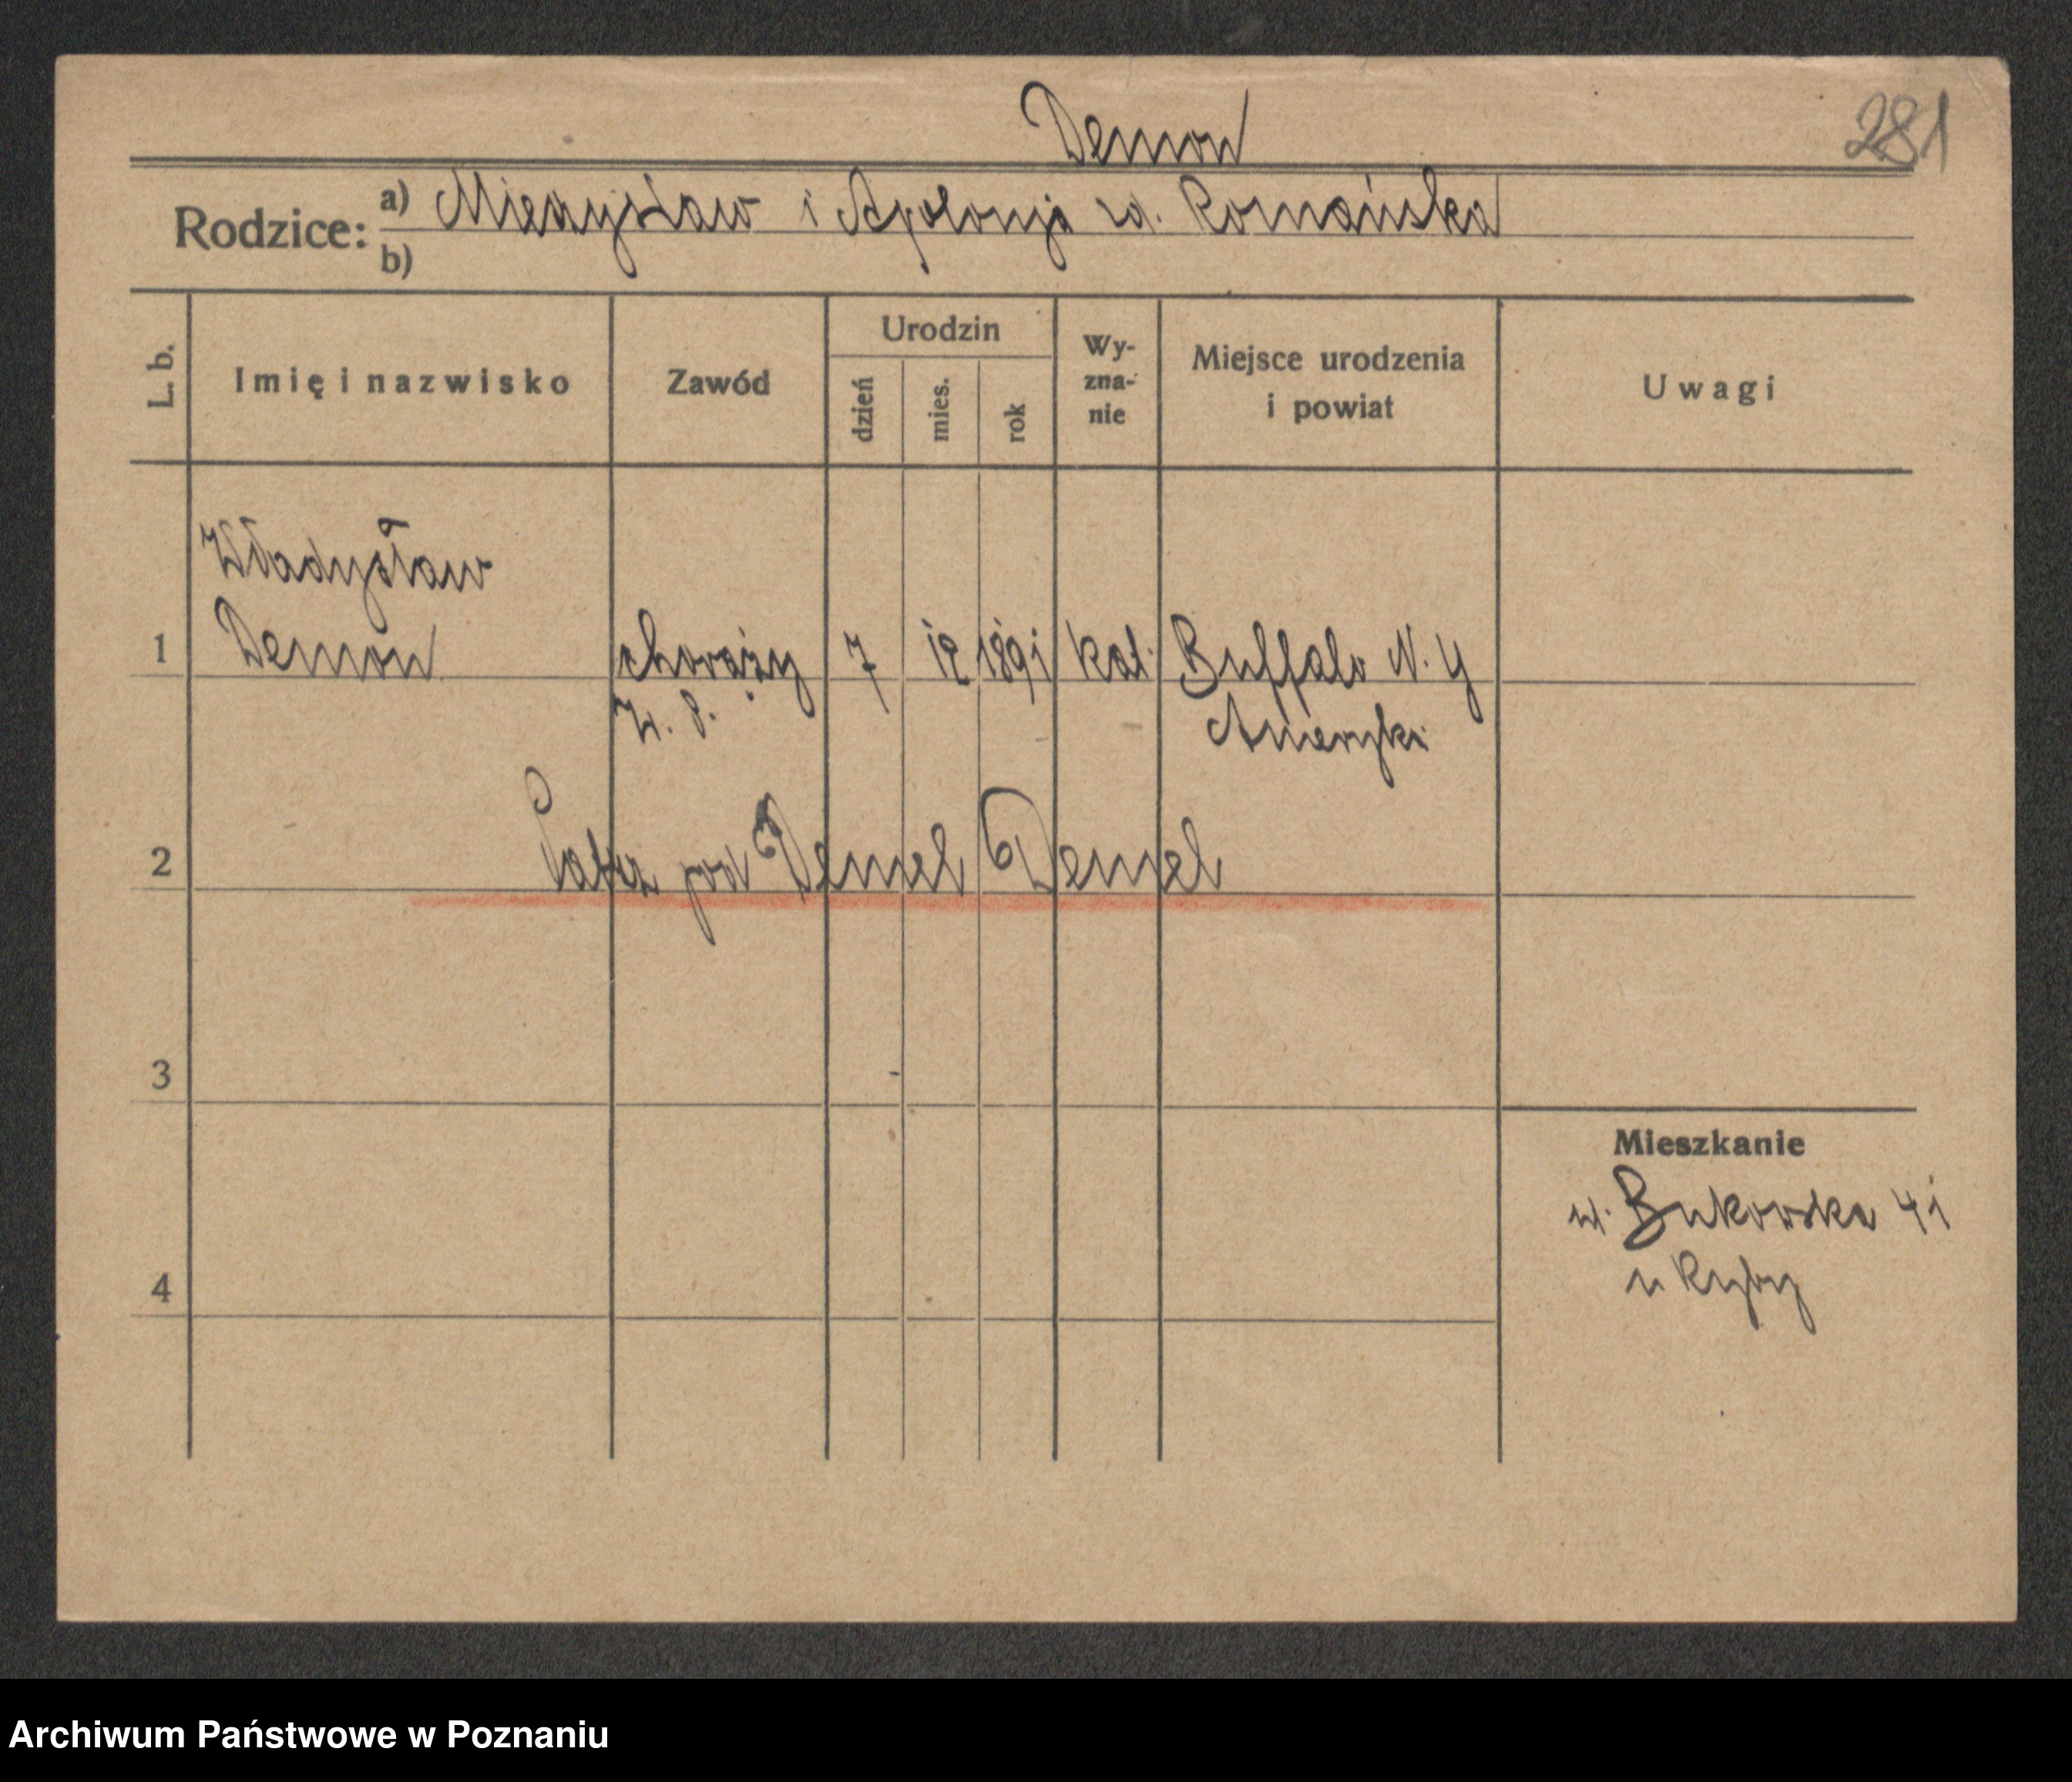 Demon
281
Rodzice: a) Mieczysław i Apolonja zd. Romańska
b)
L. b.
Imię i nazwisko
Zawód
Urodzin
dzień
mies.
rok
Wy-
zna-
nie
Miejsce urodzenia
i powiat
Uwagi
Władysław
1 Demon chorąży 7 12 1891 kat. Buffalo N. Y
W. P. Ameryki
2 Patrz pod Demel Demel
3
4
Mieszkanie
ul. Bukowska 41
u Ryby
Archiwum Państwowe w Poznaniu